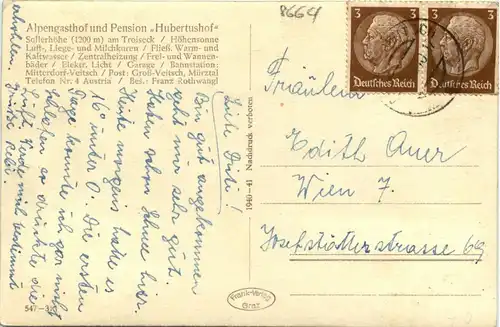 8664
Alpengasthof und Pension „Hubertushof"
Sollerhöhe (1200 m) am Troiseck / Höhensonne
Luft-, Liege- und Milchkuren / Fließ. Warm- und
Kaltwasser / Zentralheizung / Frei- und Wannen-
bäder / Elektr. Licht / Garage / Bahnstation:
Mitterdorf-Veitsch / Post: Groß-Veitsch, Mürztal
Telefon Nr. 4 Austria / Bes.: Franz Rothwangl
Liebe Ditti!
Bin gut angekommen
geht mir sehr gut.
Haben schon Schnee hier.
Heute morgens hatte es
16° unter 0. Die ersten
Tage konnte ich gar nicht
schlafen es drückte die
Luft. Werde mich bestimmt
erholen.
547-3
1940-41 Nachdruck verboten
Frank-Verlag
Graz
3 3
Deutsches Reich
3 3
Deutsches Reich
Fräulein
Edith Auer
Wien 7.
Josefstätterstrasse 69